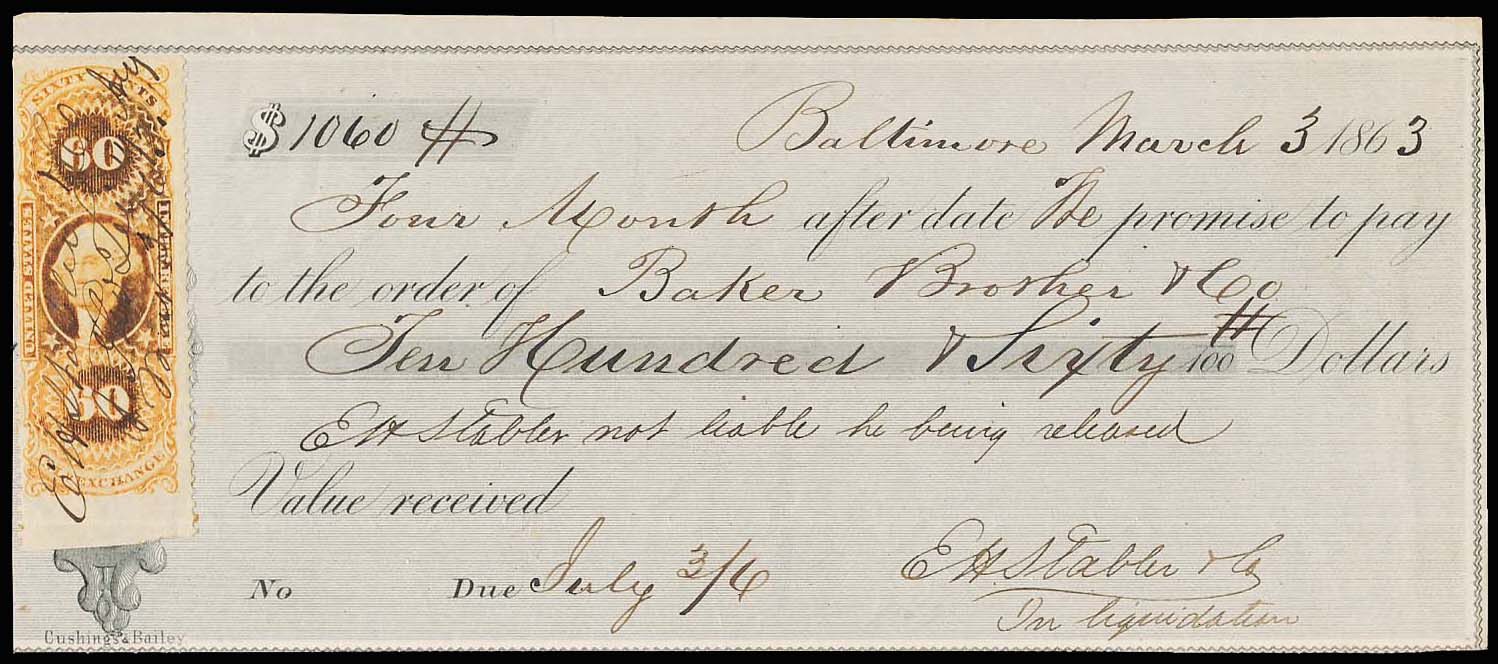 $ 1060 #
Baltimore March 3 1863
Four Month after date We promise to pay
to the order of Baker Brother & Co
Ten Hundred & Sixty #/100 Dollars
EH Stabler not liable he being released
Value received
No Due July 3/6
EH Stabler & Co
In liquidation
Cushings & Bailey
SIXTY CENTS
60
UNITED STATES
60
EXCHANGE